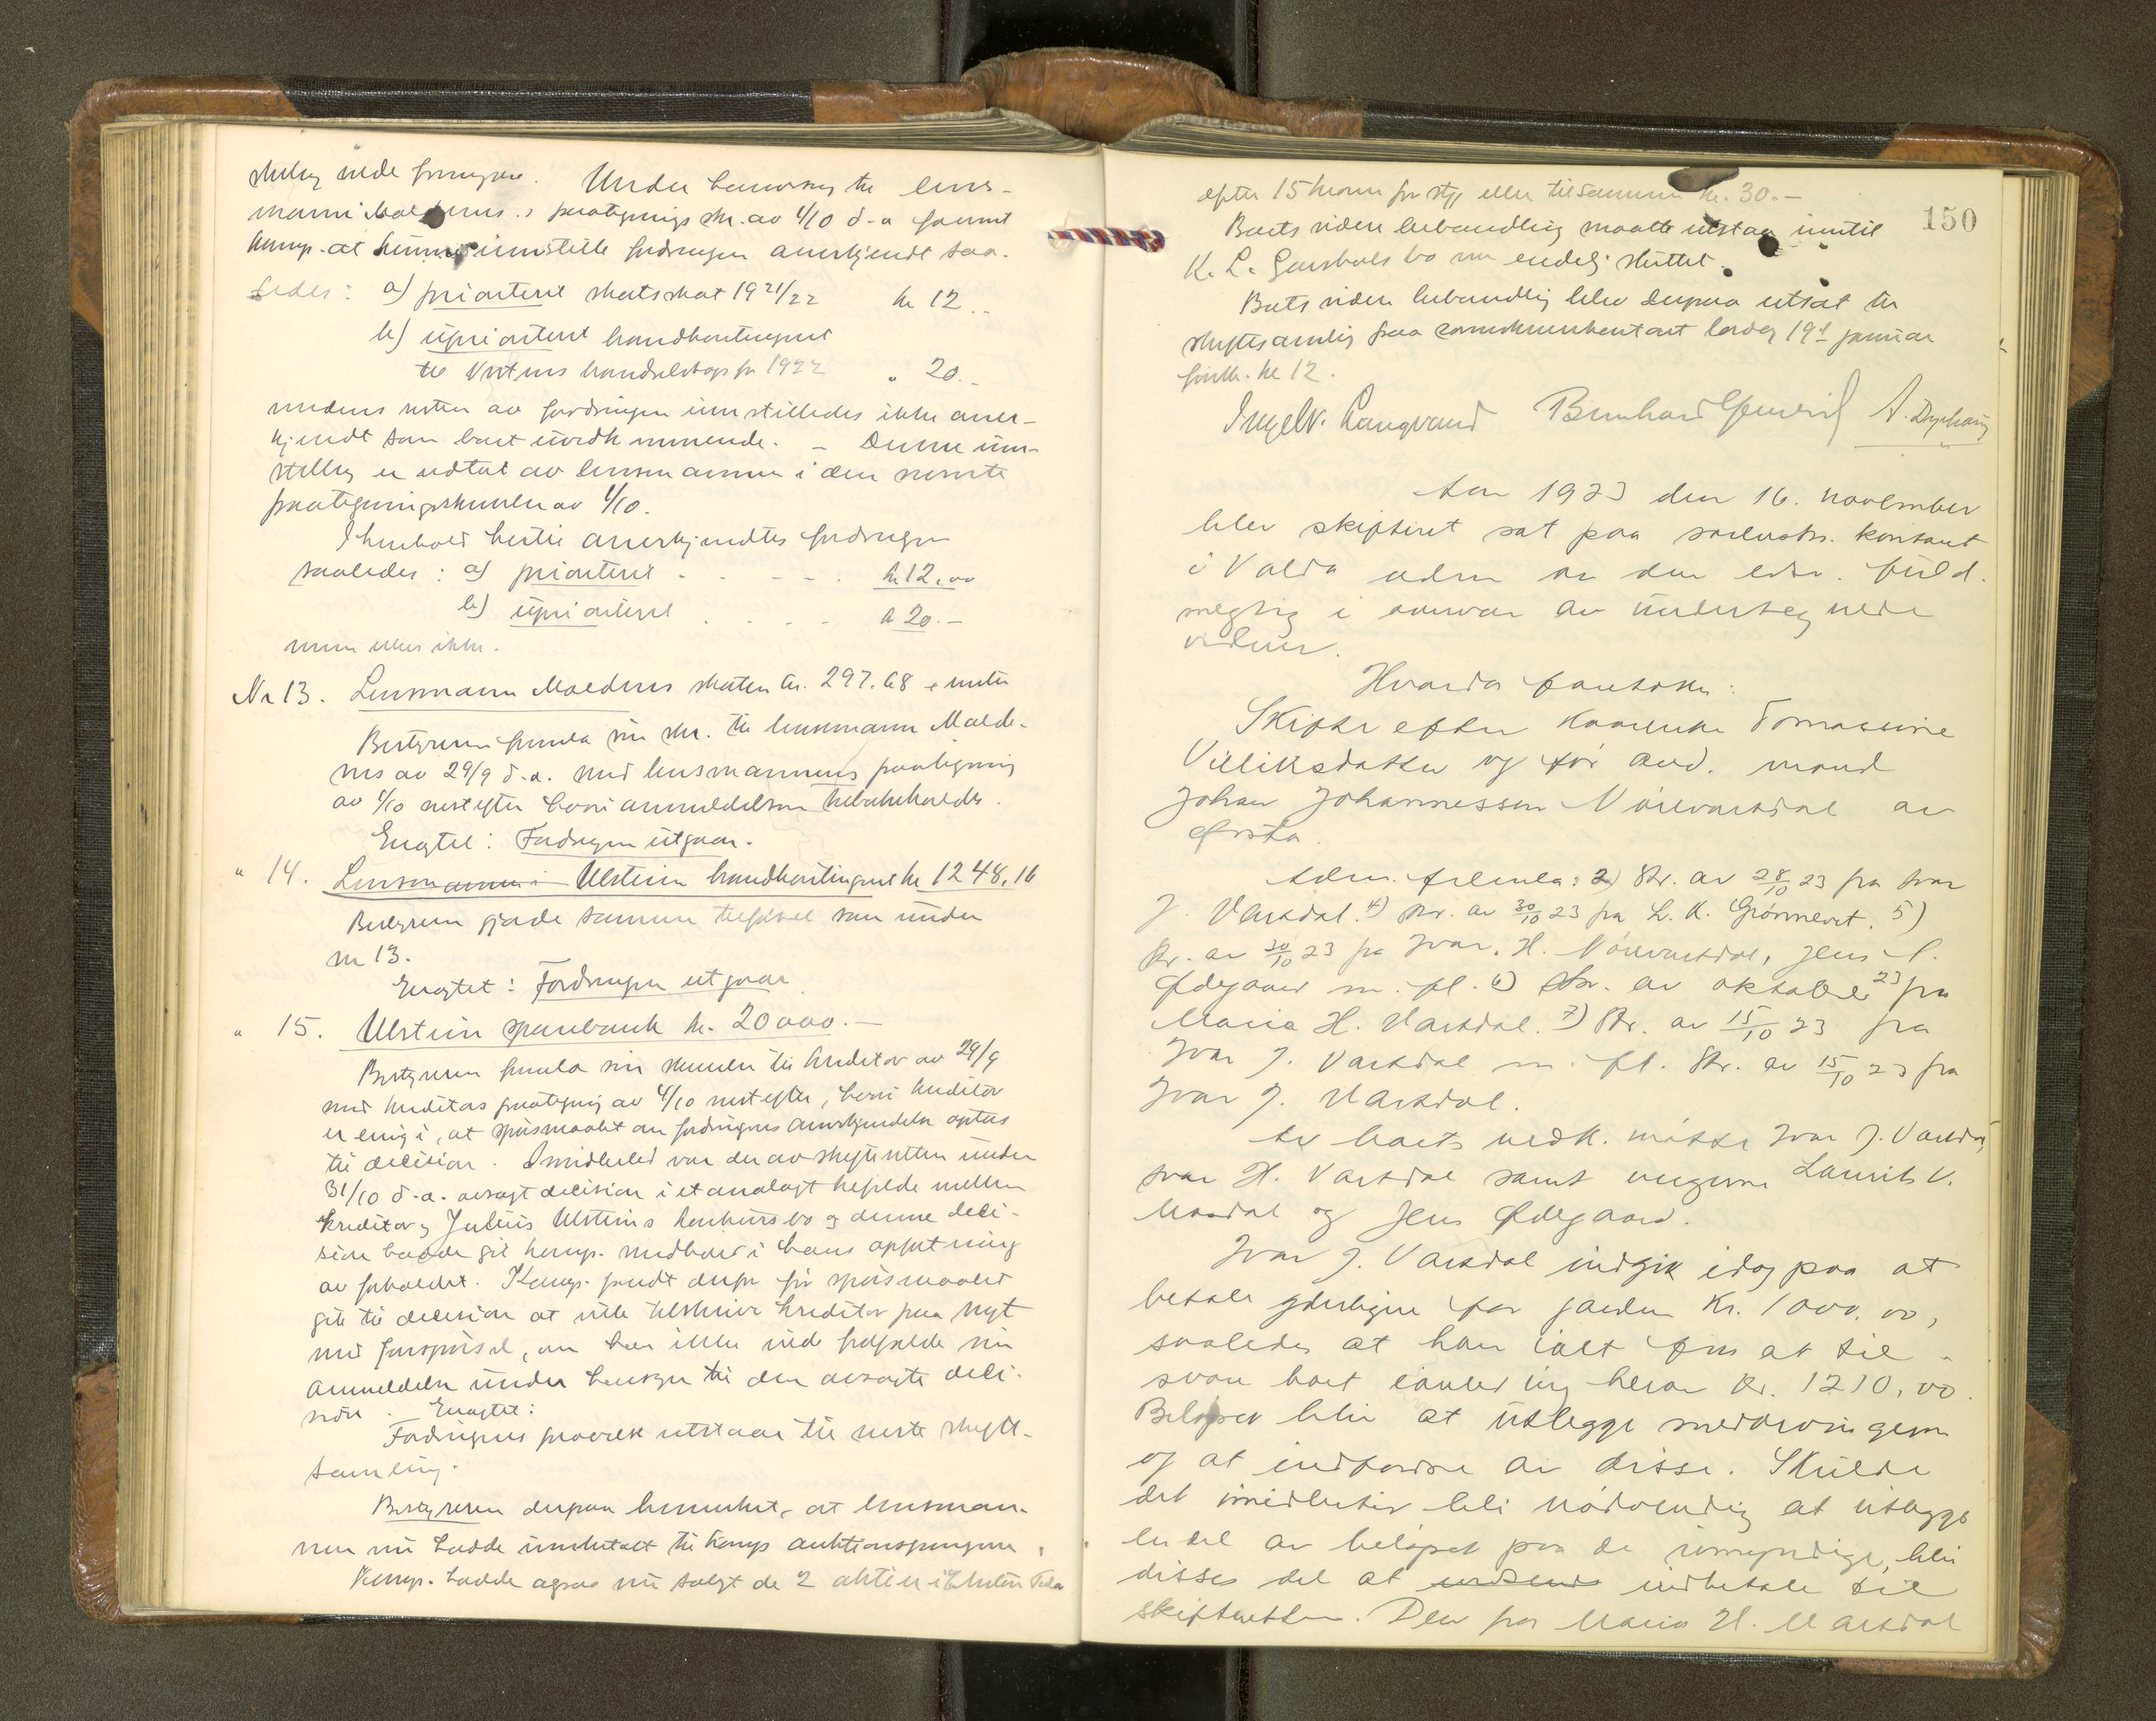 Under henvisning til lens-
mann Maldnes's paategnings skr. av 1/10 d.a. fannt
komp. at kunne innstille fordringen anerkjendt saa-
ledes: a) prioritert skatskat 1921/22 kr 12..
b) uprioritert handkontingent
til handelslags for 1922 " 20.-
medens resten av fordringen innstilledes ikke aner-
kjendt som boet uvedkommende. - Denne inn-
stilling er vedtat av lensmannen i den nevnte
paategningsskrivelse av 1/10.
I henhold hertil anerkjendtes fordringen
saaledes: a) prioritert . . . . kr 12,00
b) uprioritert . . . . kr 20.-
men ellers ikke.
Nr 13. Lensmann Maldnes skatter kr. 297.68 + renter
Bestyreren fremla sin skr. til lensmann Malde-
nes av 29/9 d.a. med lensmannens paategning
av 1/10 nestefter hvori anmeldelsen tilbakekaldes.
Eragtet: Fordringen utgaar.
" 14. Lensmannen i Ulstein handkontingent kr 1248,16
Bestyreren gjorde samme tilførsel som under
nr 13.
Eragtet: Fordringen utgaar
" 15. Ulstein sparebank kr. 20000.-
Bestyreren fremla sin skrivelse til kreditor av 29/9
med kreditors paategning av 4/10 nestefter, hvori kreditor
er enig i, at spørsmaalet om fordringens anerkjendelse optas
til decision. Imidlertid var der av skifteretten under
31/10 d.a. avsagt decision i et analogt tilfælde mellem
kreditor og Julius Ulsteins konkursbo og denne deci-
sion hadde git komp. medhold i hans opfatning
av forholdet. Komp. fandt derfor før spørsmaalet
gik til decision at ville tilskrive kreditor paa nyt
med forespørsel, om han ikke vil frafalde sin
anmeldelse under hensyn til den avsagte deci-
sion. Eragtet:
Fordringens prøvelse utstaar til neste skifte-
samling.
Bestyreren derpaa bemerket, at lensman-
nen nu hadde innbetalt til komp auktionspengene,
Komp. hadde ogsaa nu solgt de 2 aktier i
efter 15 kroner pr stk, eller tilsammen kr. 30.-
Boets videre behandling maatte utstaa inntil
K. L. bo var endelig sluttet.
Boets videre behandling blev derpaa utsat til
skiftesamling paa sorenskriverkontoret lørdag 19de januar
førstk. kl 12.
Ingelv. Langvand Bernhard
150
Aar 1923 den 16. november
blev skifteret sat paa sorenskr. kontoret
i Volda adm. av den edsv. fuld-
mægtig i nærvær av undertegnede
vidner.
Hvorda foretokes:
Skifte efter Tomassine
Villiksdatter og før avd. mand
Johan Johannessen Nörevartdal av
Ørsta.
Adm. fremla: 3) Skr. av 28/10 23 fra Ivar
J. Vartdal. 4) Skr. av 30/10 23 fra L. K. Grönnevet. 5)
Skr. av 30/10 23 fra Ivar H. Nörevartdal, Jens
Ødegaard m. fl. 6) Skr. av oktober 23 fra
Maria H. Vartdal. 7) Skr. av 15/10 23 fra
Ivar J. Vartdal m. fl. Skr. av 15/10 23 fra
Ivar J. Vartdal.
Av boets vedk. møtte Ivar J. Vartdal,
Ivar H. Vartdal samt vergerne Laurits V.
og Jens Ødegaard.
Ivar J. Vartdal indgik idag paa at
betale yderligere for gaarden Kr. 1000,00,
saaledes at han ialt faar at til-
svare boet i anledning herav Kr. 1210,00.
Beløpet blir at utlegge
og at indfordre av disse. Skulde
det imidlertid bli nødvendig at utlegge
en del av beløpet paa de umyndige, blir
disses del at indbetale til
skifteretten. Den fra Maria H. Vartdal